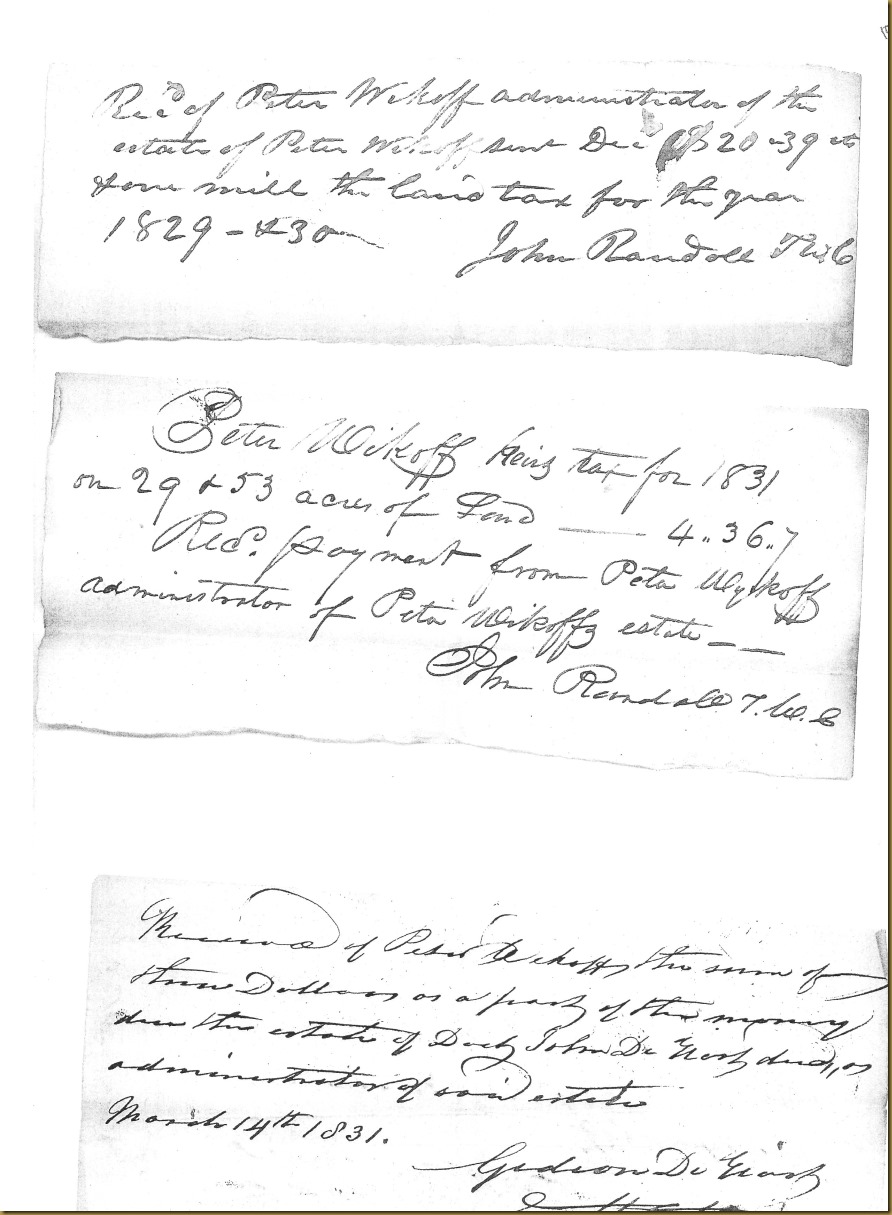 Rec'd of Peter Wikoff administrator of the
estate of Peter Wikoff senr Dec'd $20-39 cts
& one mill the land tax for the year
1829 - & 30
John Randall
Peter Wikoff heirs tax for 1831
on 29 & 53 acres of Land 4..36..7
Recd. payment from Peter Wykoff
administrator of Peter Wikoffs estate
John Randall T.W.C
Received of Peter Wikoff the sum of
three Dollars as a part of the money
due the estate of John De decd, as
administrator of said estate
March 14th 1831.
Gideon De